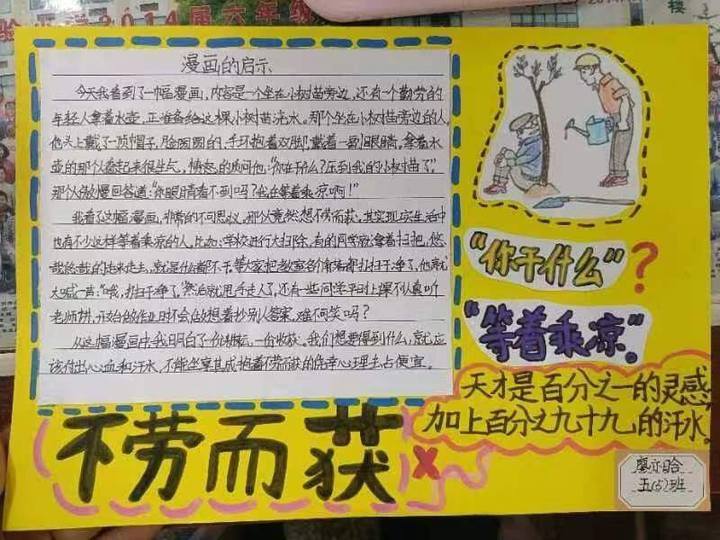 漫画的启示
今天我看到了一幅漫画,内容是一个坐在小树苗旁边,还有一个勤劳的
年轻人拿着水壶,正准备给这棵小树苗浇水。那个坐在小树苗旁边的人
他头上戴了一顶帽子,脸圆圆的,手环抱着双脚,戴着一副眼睛,拿着水
壶的那个看起来很生气,愤怒的质问他:“你干什么?压到我的小树苗了”,
那个人傲慢回答道:“你眼睛看不到吗?我在等着乘凉啊!”
我看了这幅漫画,非常的不可思议,那个人竟然想不劳而获,其实现实生活中
也有不少这样等着乘凉的人,比如:学校进行大扫除,有的同学就拿着扫把,悠
哉悠哉的走来走去,就是什么都不干,等大家把教室各个角落都打扫干净了,他就
大喊一声:“哦,扫干净了,”然后就甩手走人了,还有一些同学平时上课不认真听
老师讲,开始做作业时不会做想着抄别人答案,难不可笑吗?
从这幅漫画中我明白了一份耕耘,一份收获。我们想要得到什么,就应
该付出心血和汗水,不能坐享其成抱着不劳而获的侥幸心理去占便宜。
“你干什么”?
“等着乘凉”。
天才是百分之一的灵感,
加上百分之九十九的汗水。
不劳而获
五(5)班